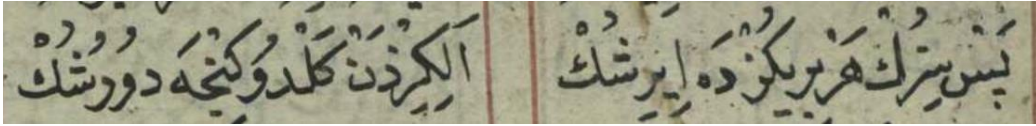 پَسْ سِزُكْ هَرْ بِرِيكُزْ دَه اِيرِشُكْ
اَلِكِزْدَنْ كَلْدُوكِنْجَه دُورُشُكْ